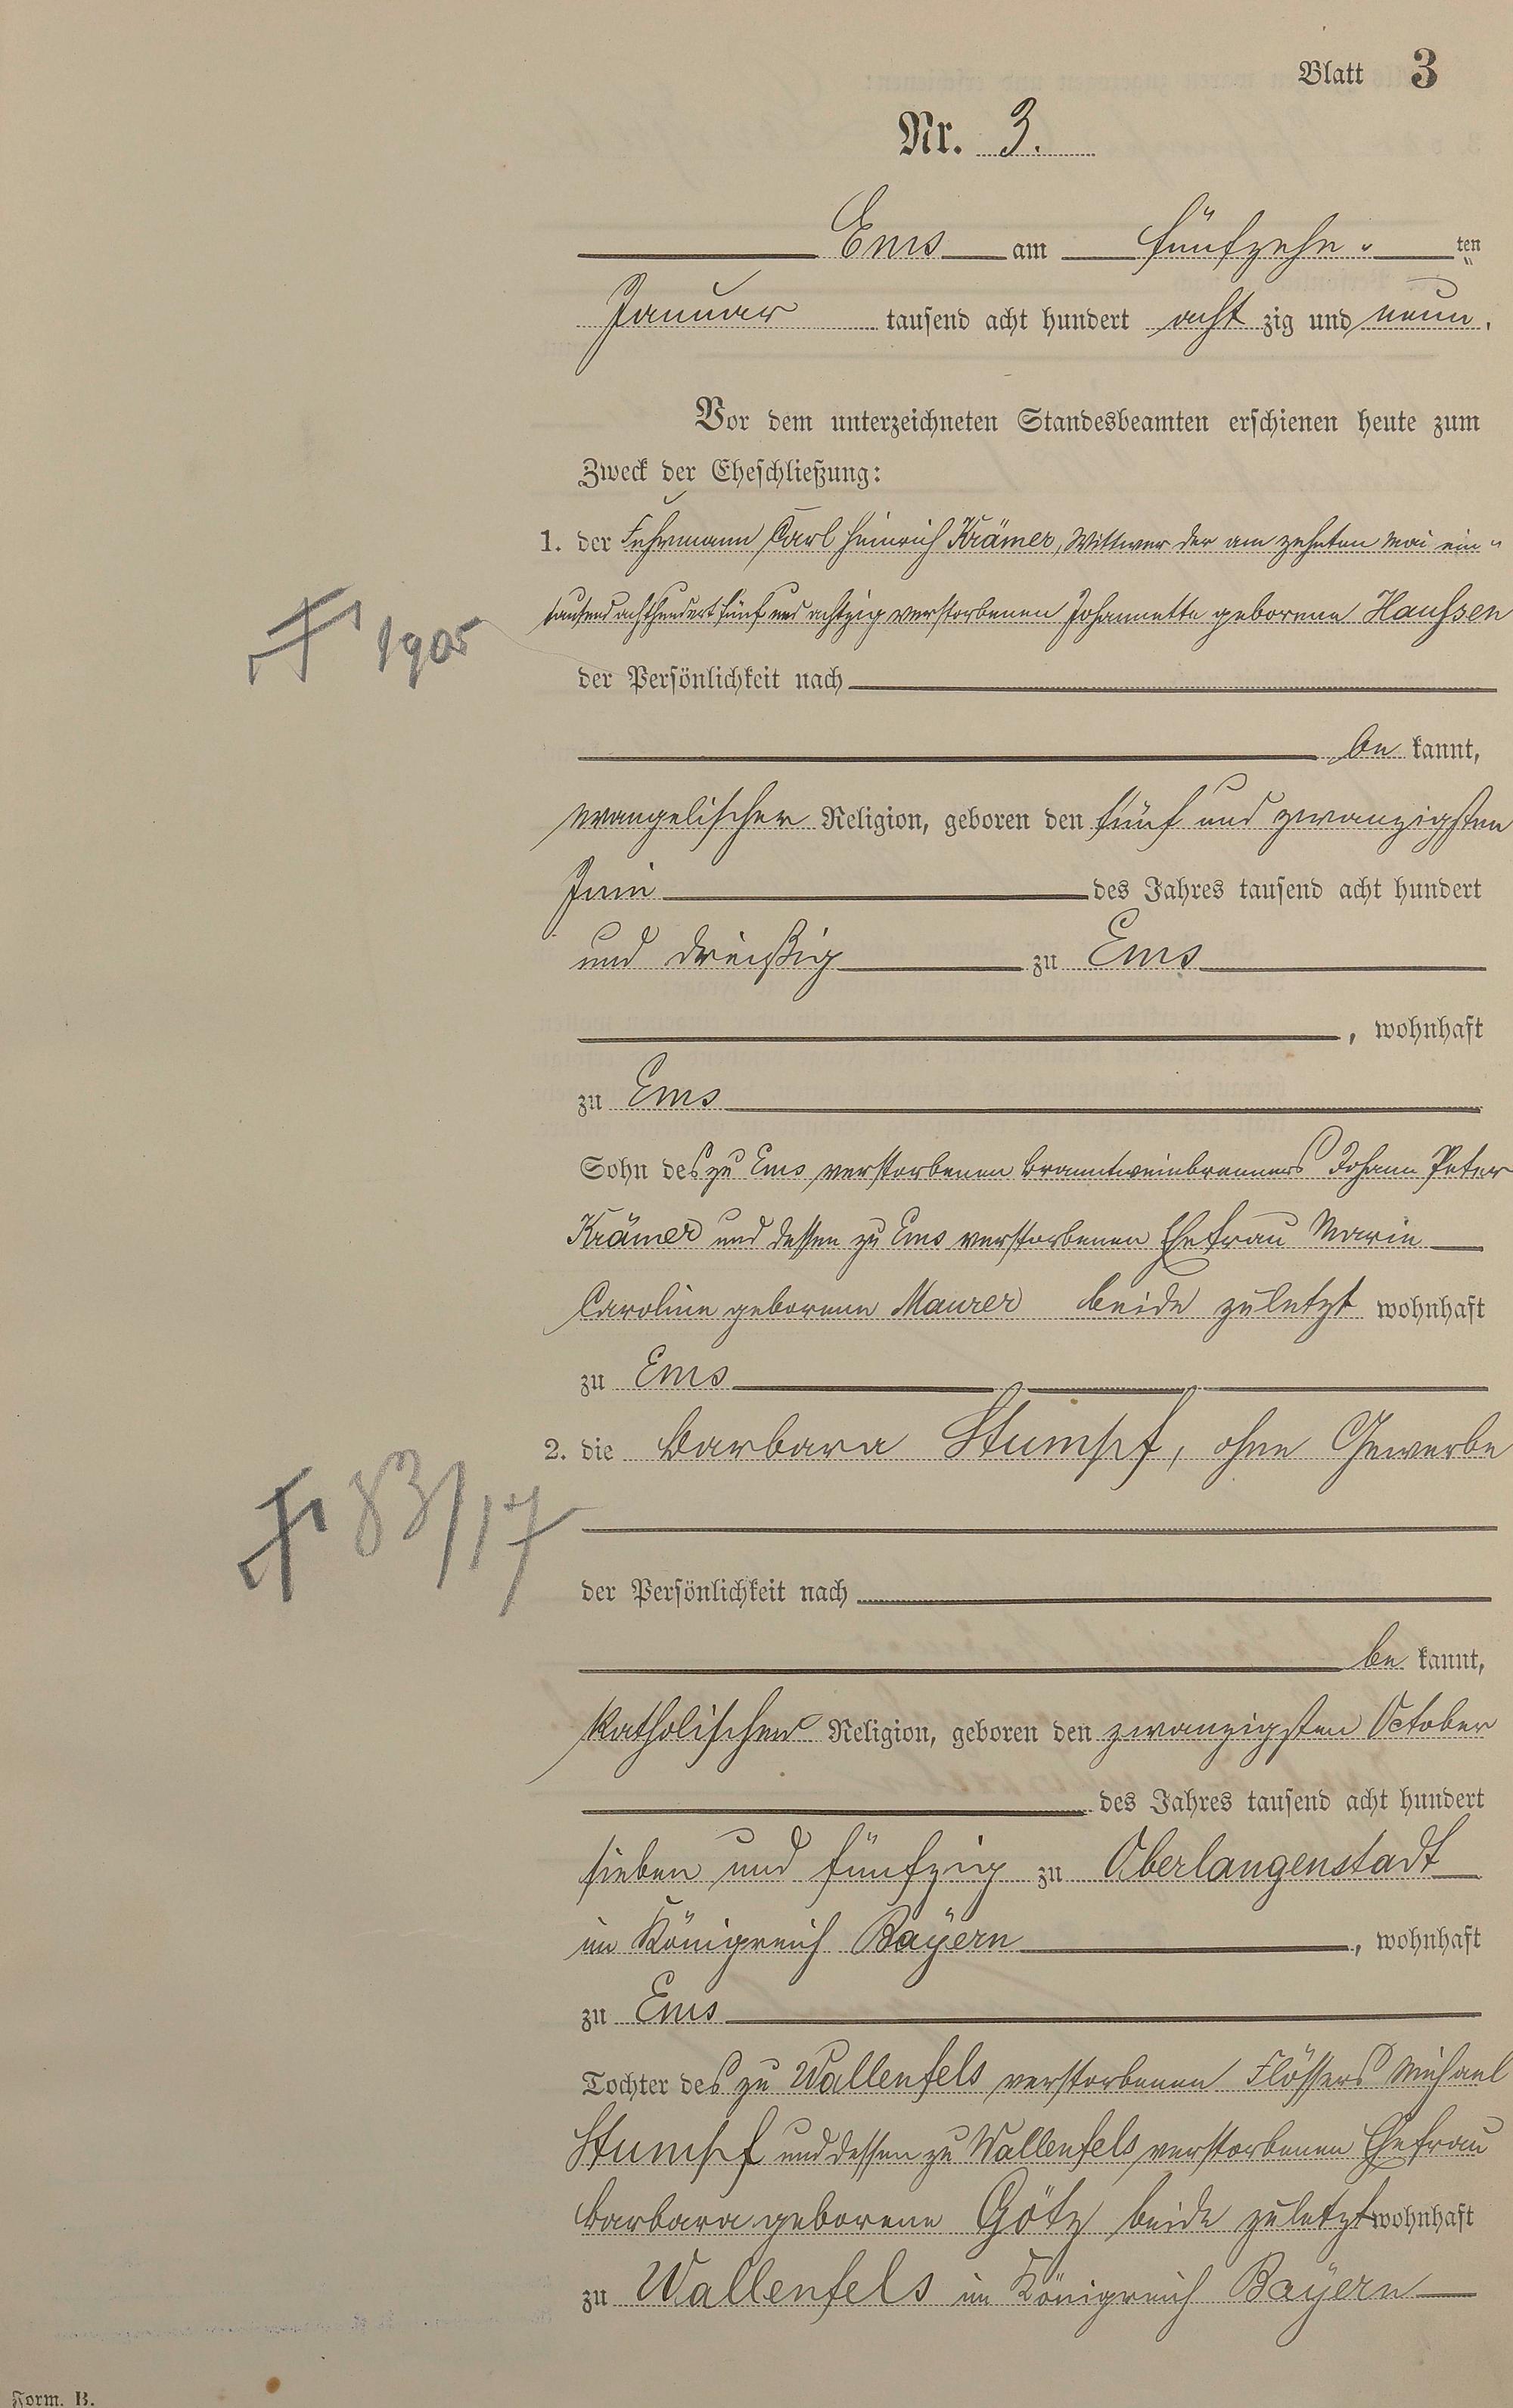 Blatt 3
Nr. 3.
Ems am fünfzehn- ten
Januar tausend acht hundert acht zig und neun.
Vor dem unterzeichneten Standesbeamten erschienen heute zum
Zweck der Eheschließung:
1. der Fuhrmann Carl Heinrich Krämer, Wittwer der am zehnten Mai ein-
tausend achthundert fünf und achtzig verstorbenen Johannette geborene Haussen
1905
der Persönlichkeit nach
be kannt,
evangelischer Religion, geboren den fünf und zwanzigsten
Juni des Jahres tausend acht hundert
und dreißig zu Ems
, wohnhaft
zu Ems
Sohn des zu Ems verstorbenen Branntweinbrenners Johann Peter
Krämer und dessen zu Ems verstorbenen Ehefrau Marie
Caroline geborene Maurer beide zuletzt wohnhaft
zu Ems
2. die Barbara Stumpf, ohne Gewerbe
83/17
der Persönlichkeit nach
be kannt,
katholischer Religion, geboren den zwanzigsten October
des Jahres tausend acht hundert
sieben und fünfzig zu Oberlangenstadt
im Königreich Bayern , wohnhaft
zu Ems
Tochter des zu Wallenfels verstorbenen Flössers Michael
Stumpf und dessen zu Wallenfels verstorbenen Ehefrau
Barbara geborene Götz beide zuletzt wohnhaft
zu Wallenfels im Königreich Bayern
Form. B.